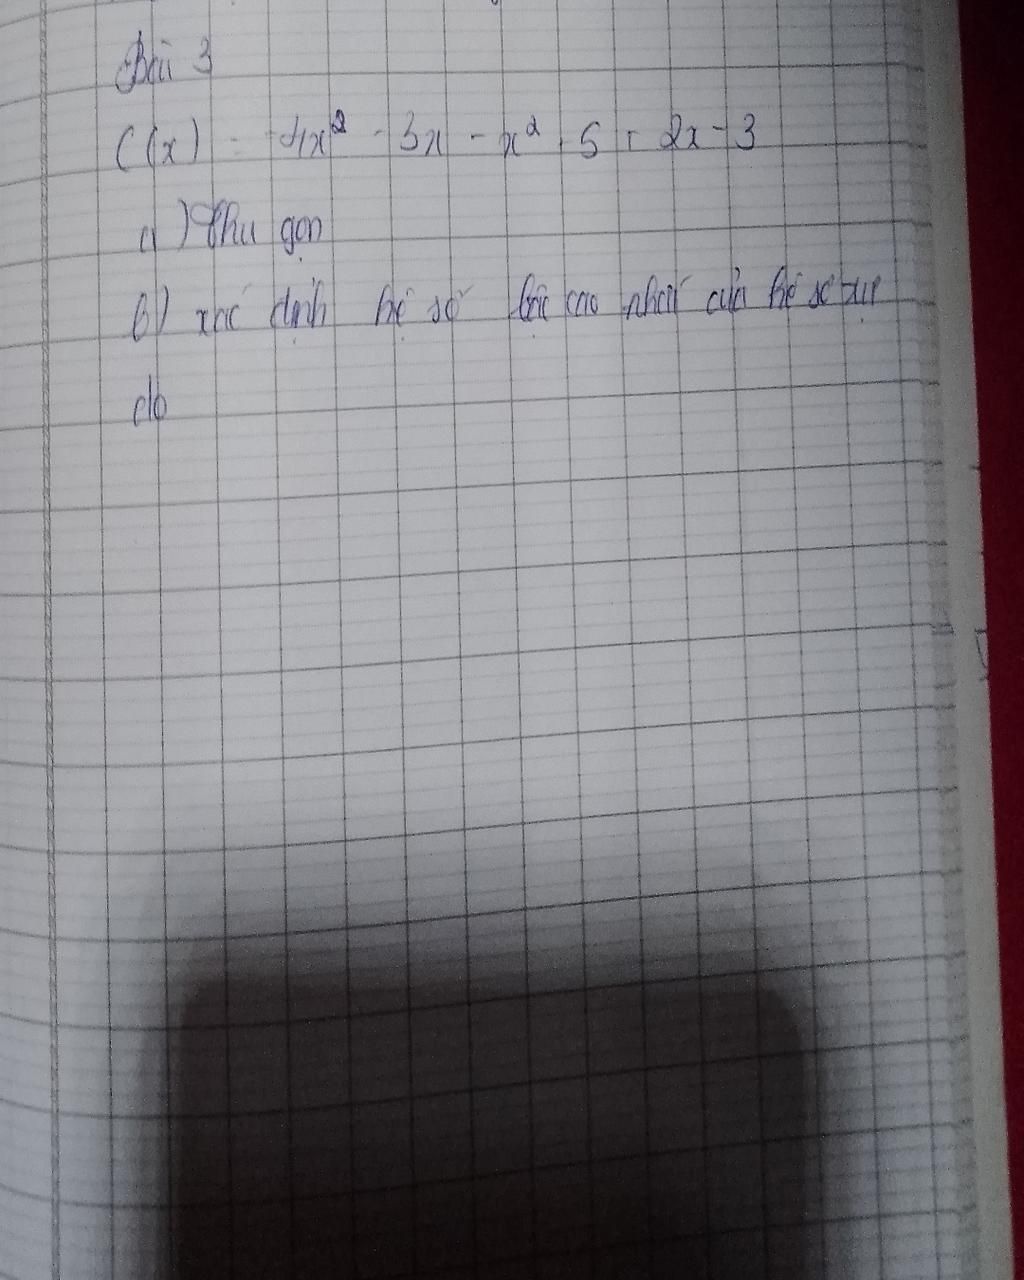 Bài 3
C(x) = 4x² - 3x - x² + 5 + 2x - 3
a) Thu gọn
b) xác định hệ số bậc cao nhất của hệ số tự
do